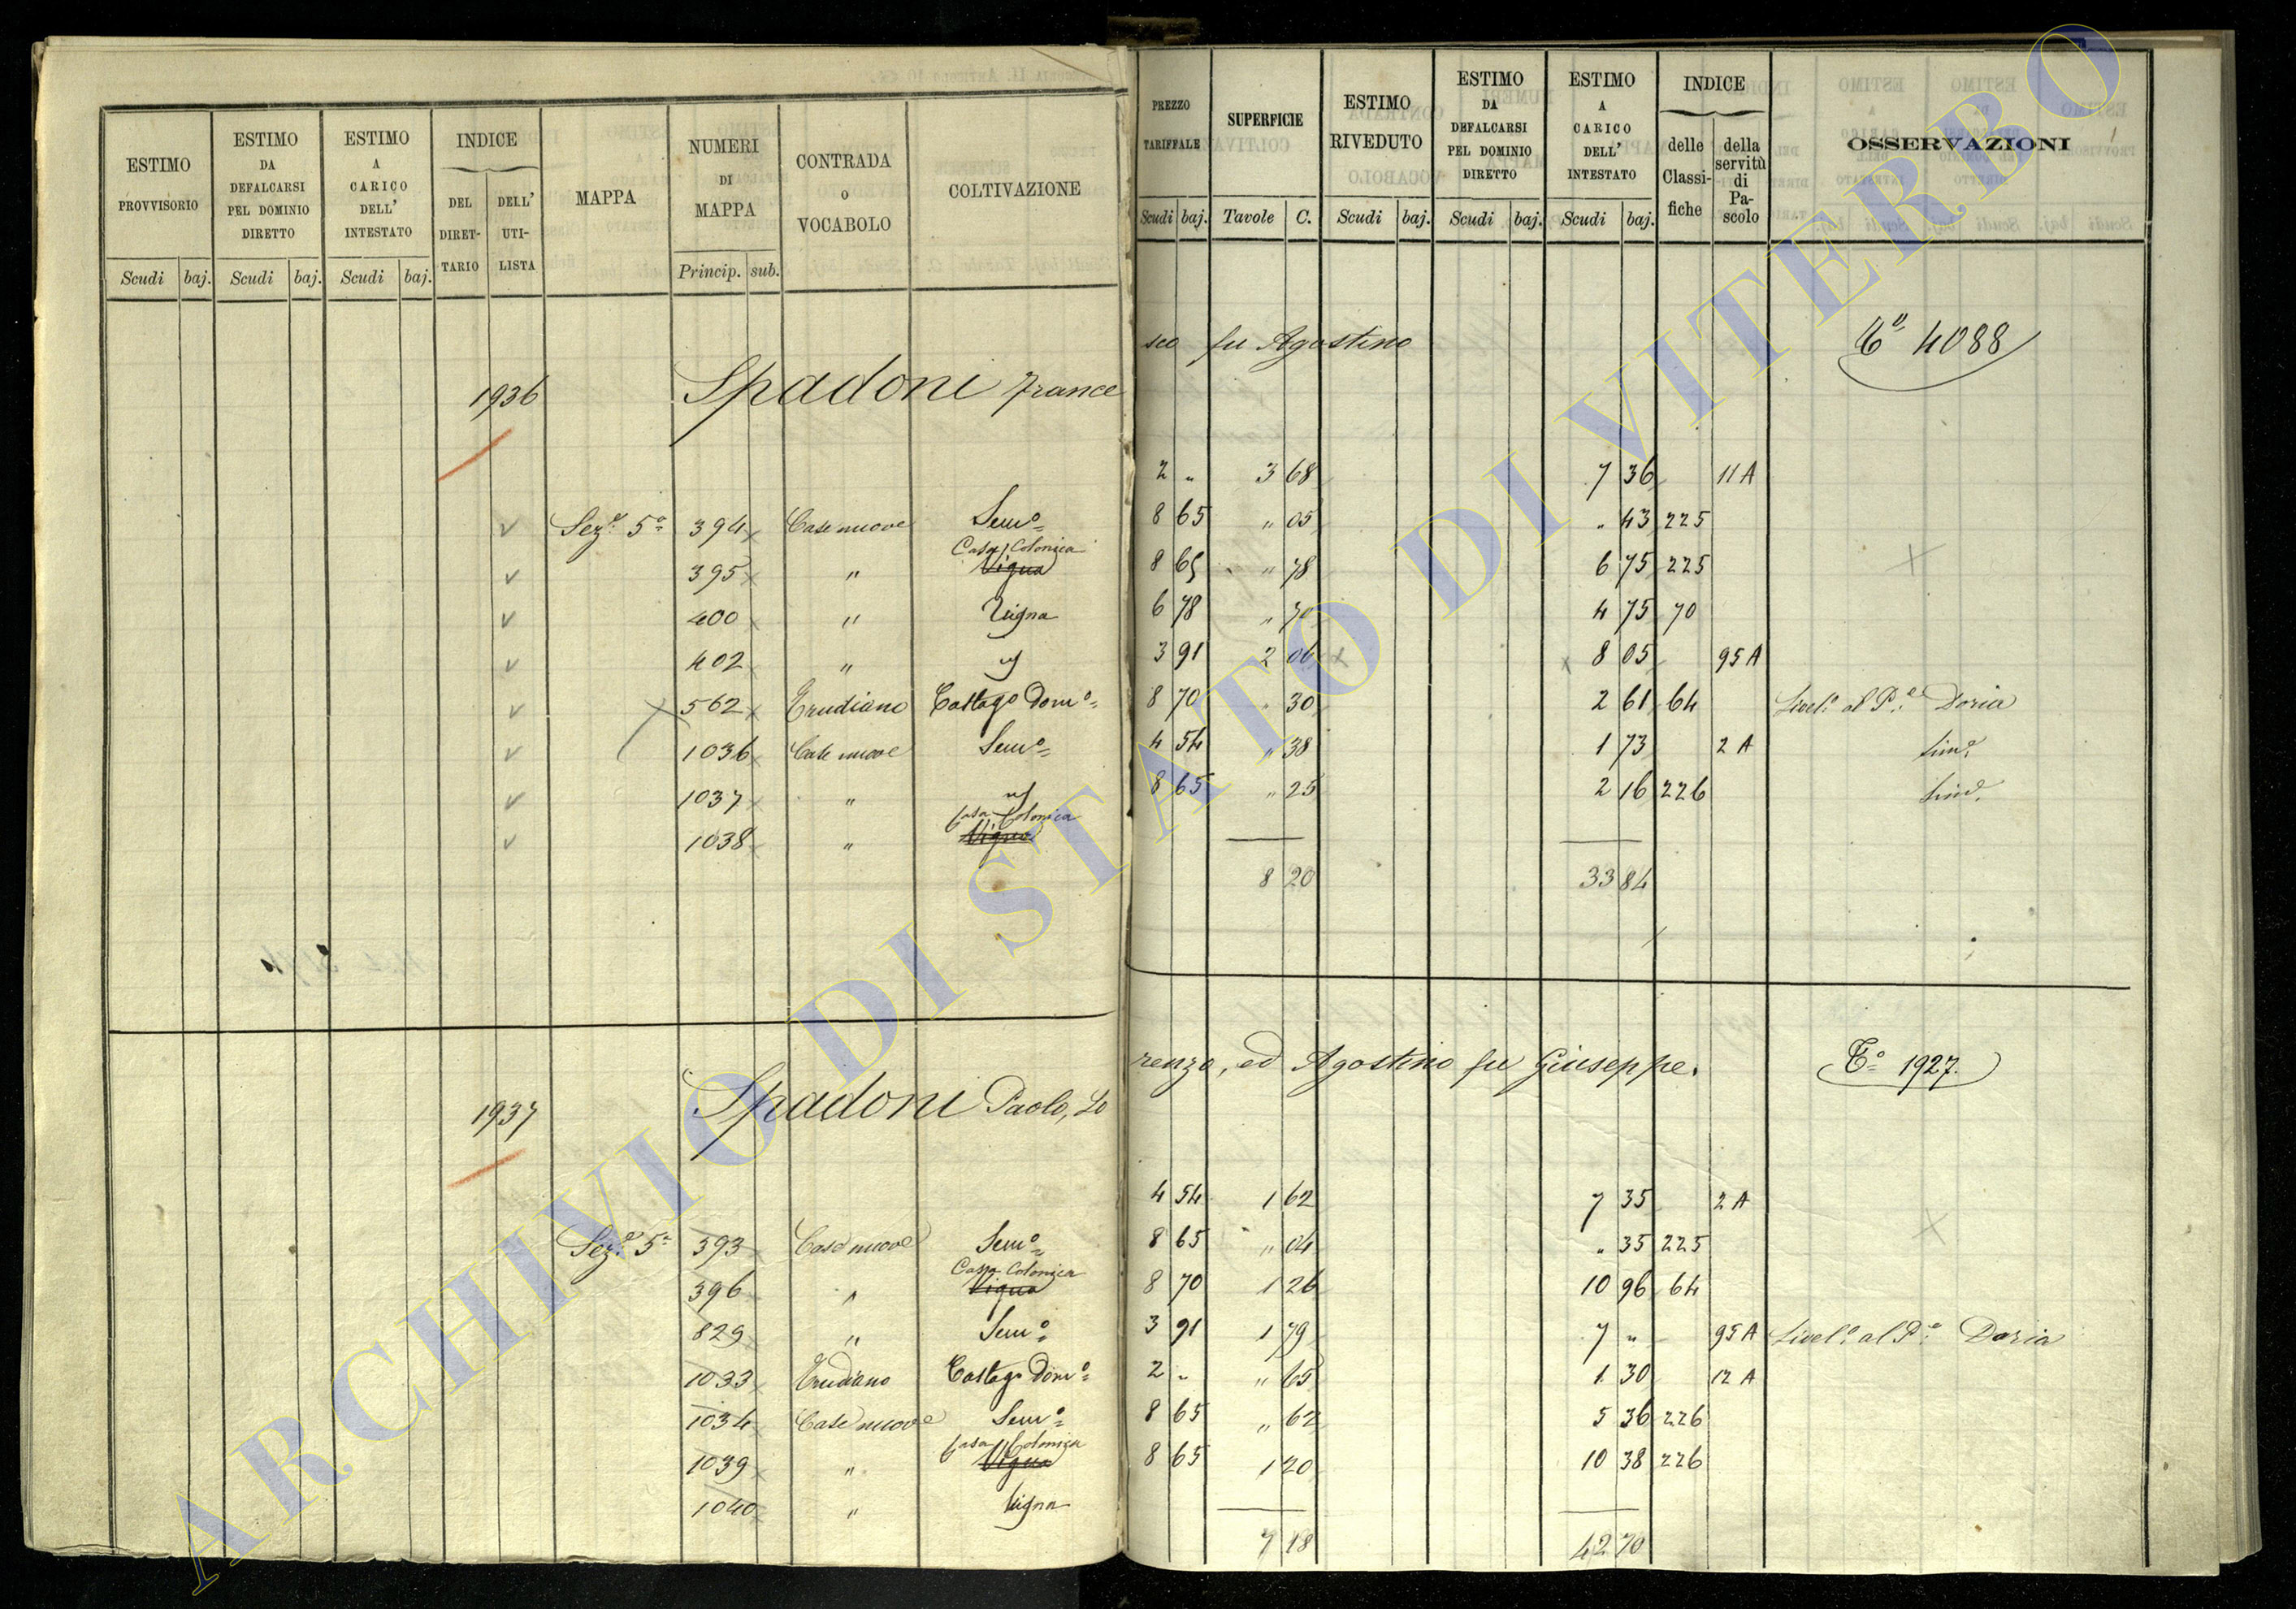 ESTIMO PROVVISORIO
ESTIMO DA DEFALCARSI PEL DOMINIO DIRETTO
ESTIMO A CARICO DELL' INTESTATO
INDICE
DEL DIRET-TARIO
DELL' UTI-LISTA
MAPPA
NUMERI DI MAPPA
CONTRADA O VOCABOLO
COLTIVAZIONE
Scudi baj. Scudi baj. Scudi baj. Princip. sub.
PREZZO TARIFFALE
SUPERFICIE
ESTIMO RIVEDUTO
ESTIMO DA DEFALCARSI PEL DOMINIO DIRETTO
ESTIMO A CARICO DELL' INTESTATO
INDICE
delle Classi-fiche
della servitù di Pa-scolo
OSSERVAZIONI
Scudi baj. Tavole C. Scudi baj. Scudi baj. Scudi baj.
1936 Spadoni Frances
sco fu Agostino 4088
Sez.e 5a 394 Case nuove Sem.o 2 " 3 68 7 36 11 A
395 " Casa Colonica Vigna 8 65 " 05 " 43 225
400 " Vigna 8 65 " 78 6 75 225
402 " 6 78 " 70 4 75 70
562 Trudiano Castag.o Dom.o 3 91 2 06 8 05 95 A Livel.o al P.e Doria
1036 Case nuove Sem.o 8 70 " 30 2 61 64
1037 " 4 54 " 38 1 73 2 A
1038 " Casa Colonica Vigna 8 65 " 25 2 16 226
8 20 33 84
1937 Spadoni Paolo, Lo
renzo, ed Agostino fu Giuseppe. 1927.
Sez.e 5a 393 Case nuove Sem.o 4 54 1 62 7 35 2 A
396 " Casa Colonica Vigna 8 65 " 04 " 35 225
829 " Sem.o 8 70 1 26 10 96 64
1033 Trudiano Castag.o Dom.o 3 91 1 79 7 " 95 A Livel.o al P.e Doria
1034 Case nuove Sem.o 2 " " 65 1 30 12 A
1039 " Casa Colonica Vigna 8 65 " 62 5 36 226
1040 " Vigna 8 65 1 20 10 38 226
7 18 42 70
ARCHIVIO DI STATO DI VITERBO